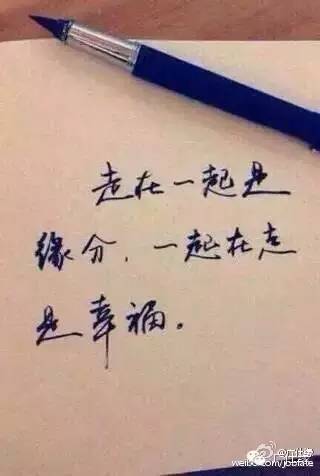 走在一起是
缘分,一起在走
是幸福。
weibo.com/jobfate